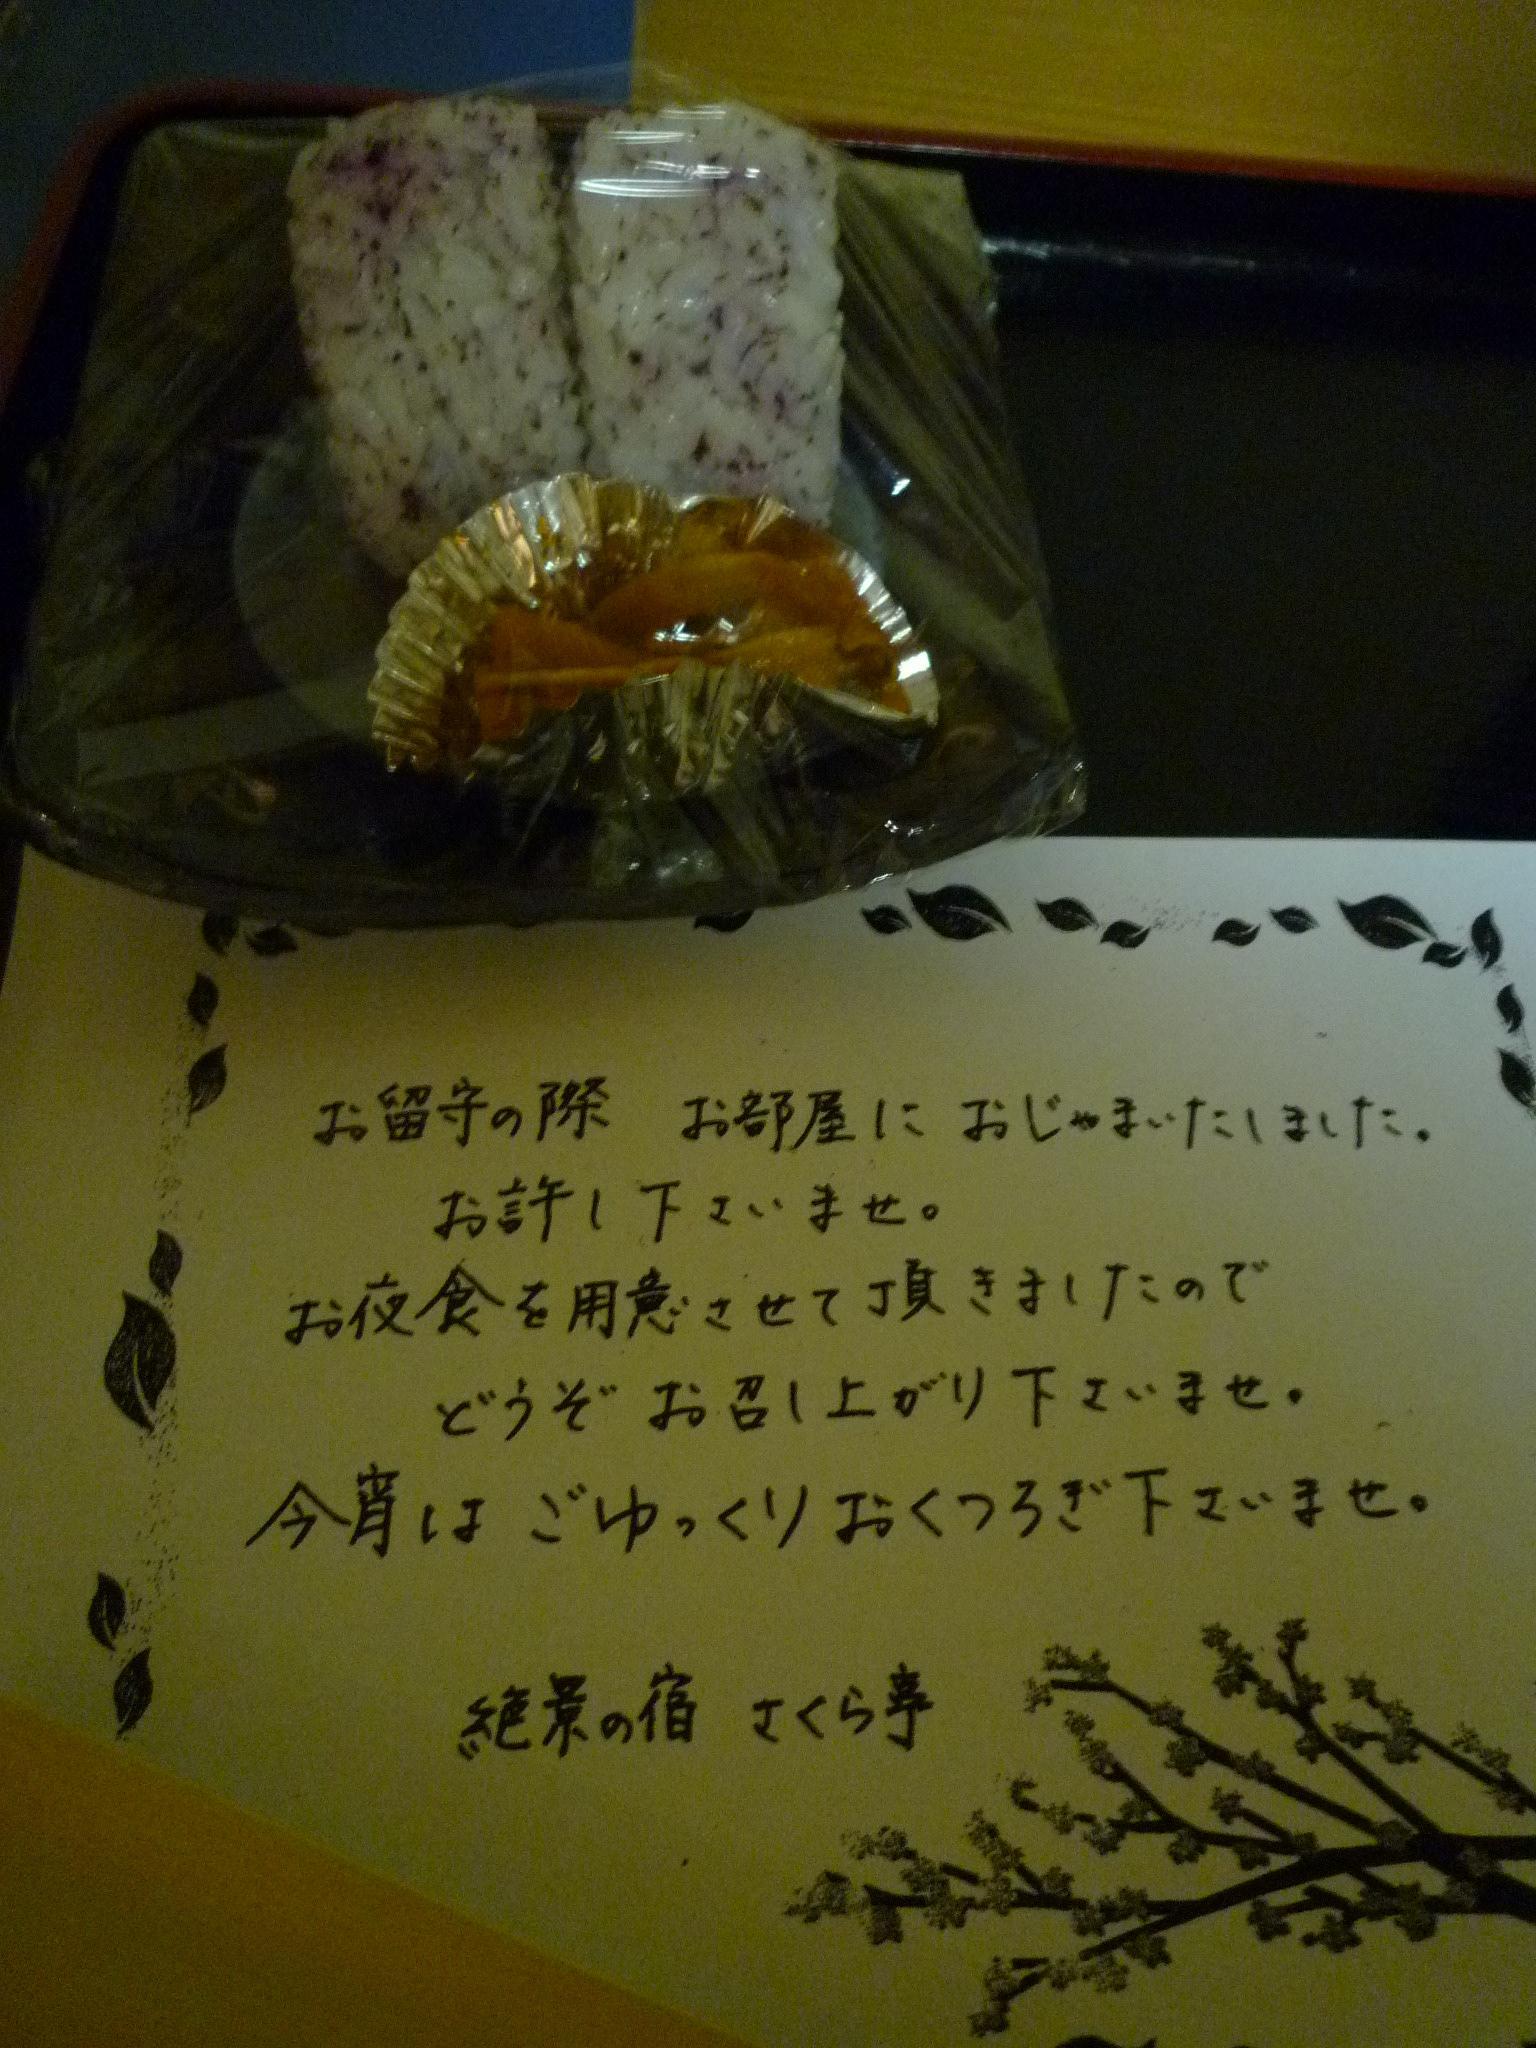 お留守の際 お部屋に おじゃまいたしました。
お許し下さいませ。
お夜食を用意させて頂きましたので
どうぞ お召し上がり下さいませ。
今宵は ごゆっくりおくつろぎ下さいませ。
絶景の宿 さくら亭